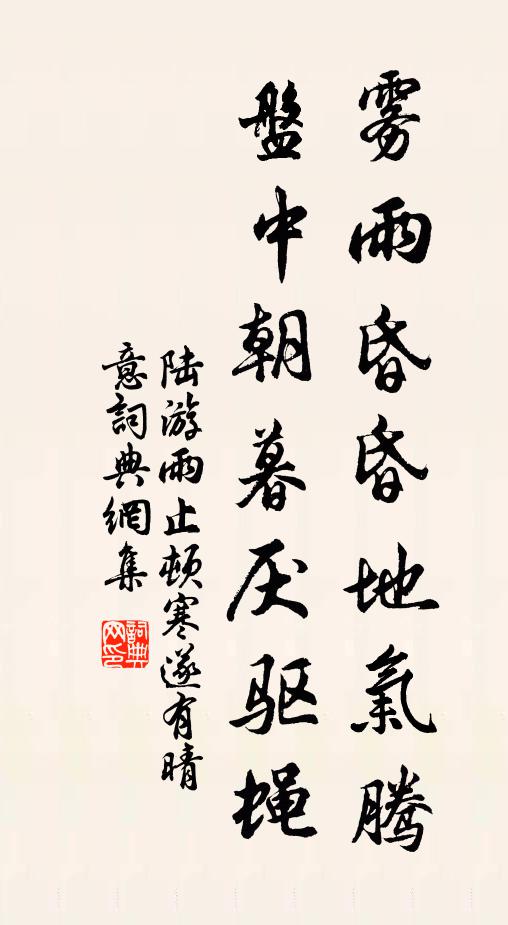 雾雨昏昏地氣騰
盤中朝暮厌驱蝇
陆游雨止頓寒遂有晴
意詞典網集
詞典
网印